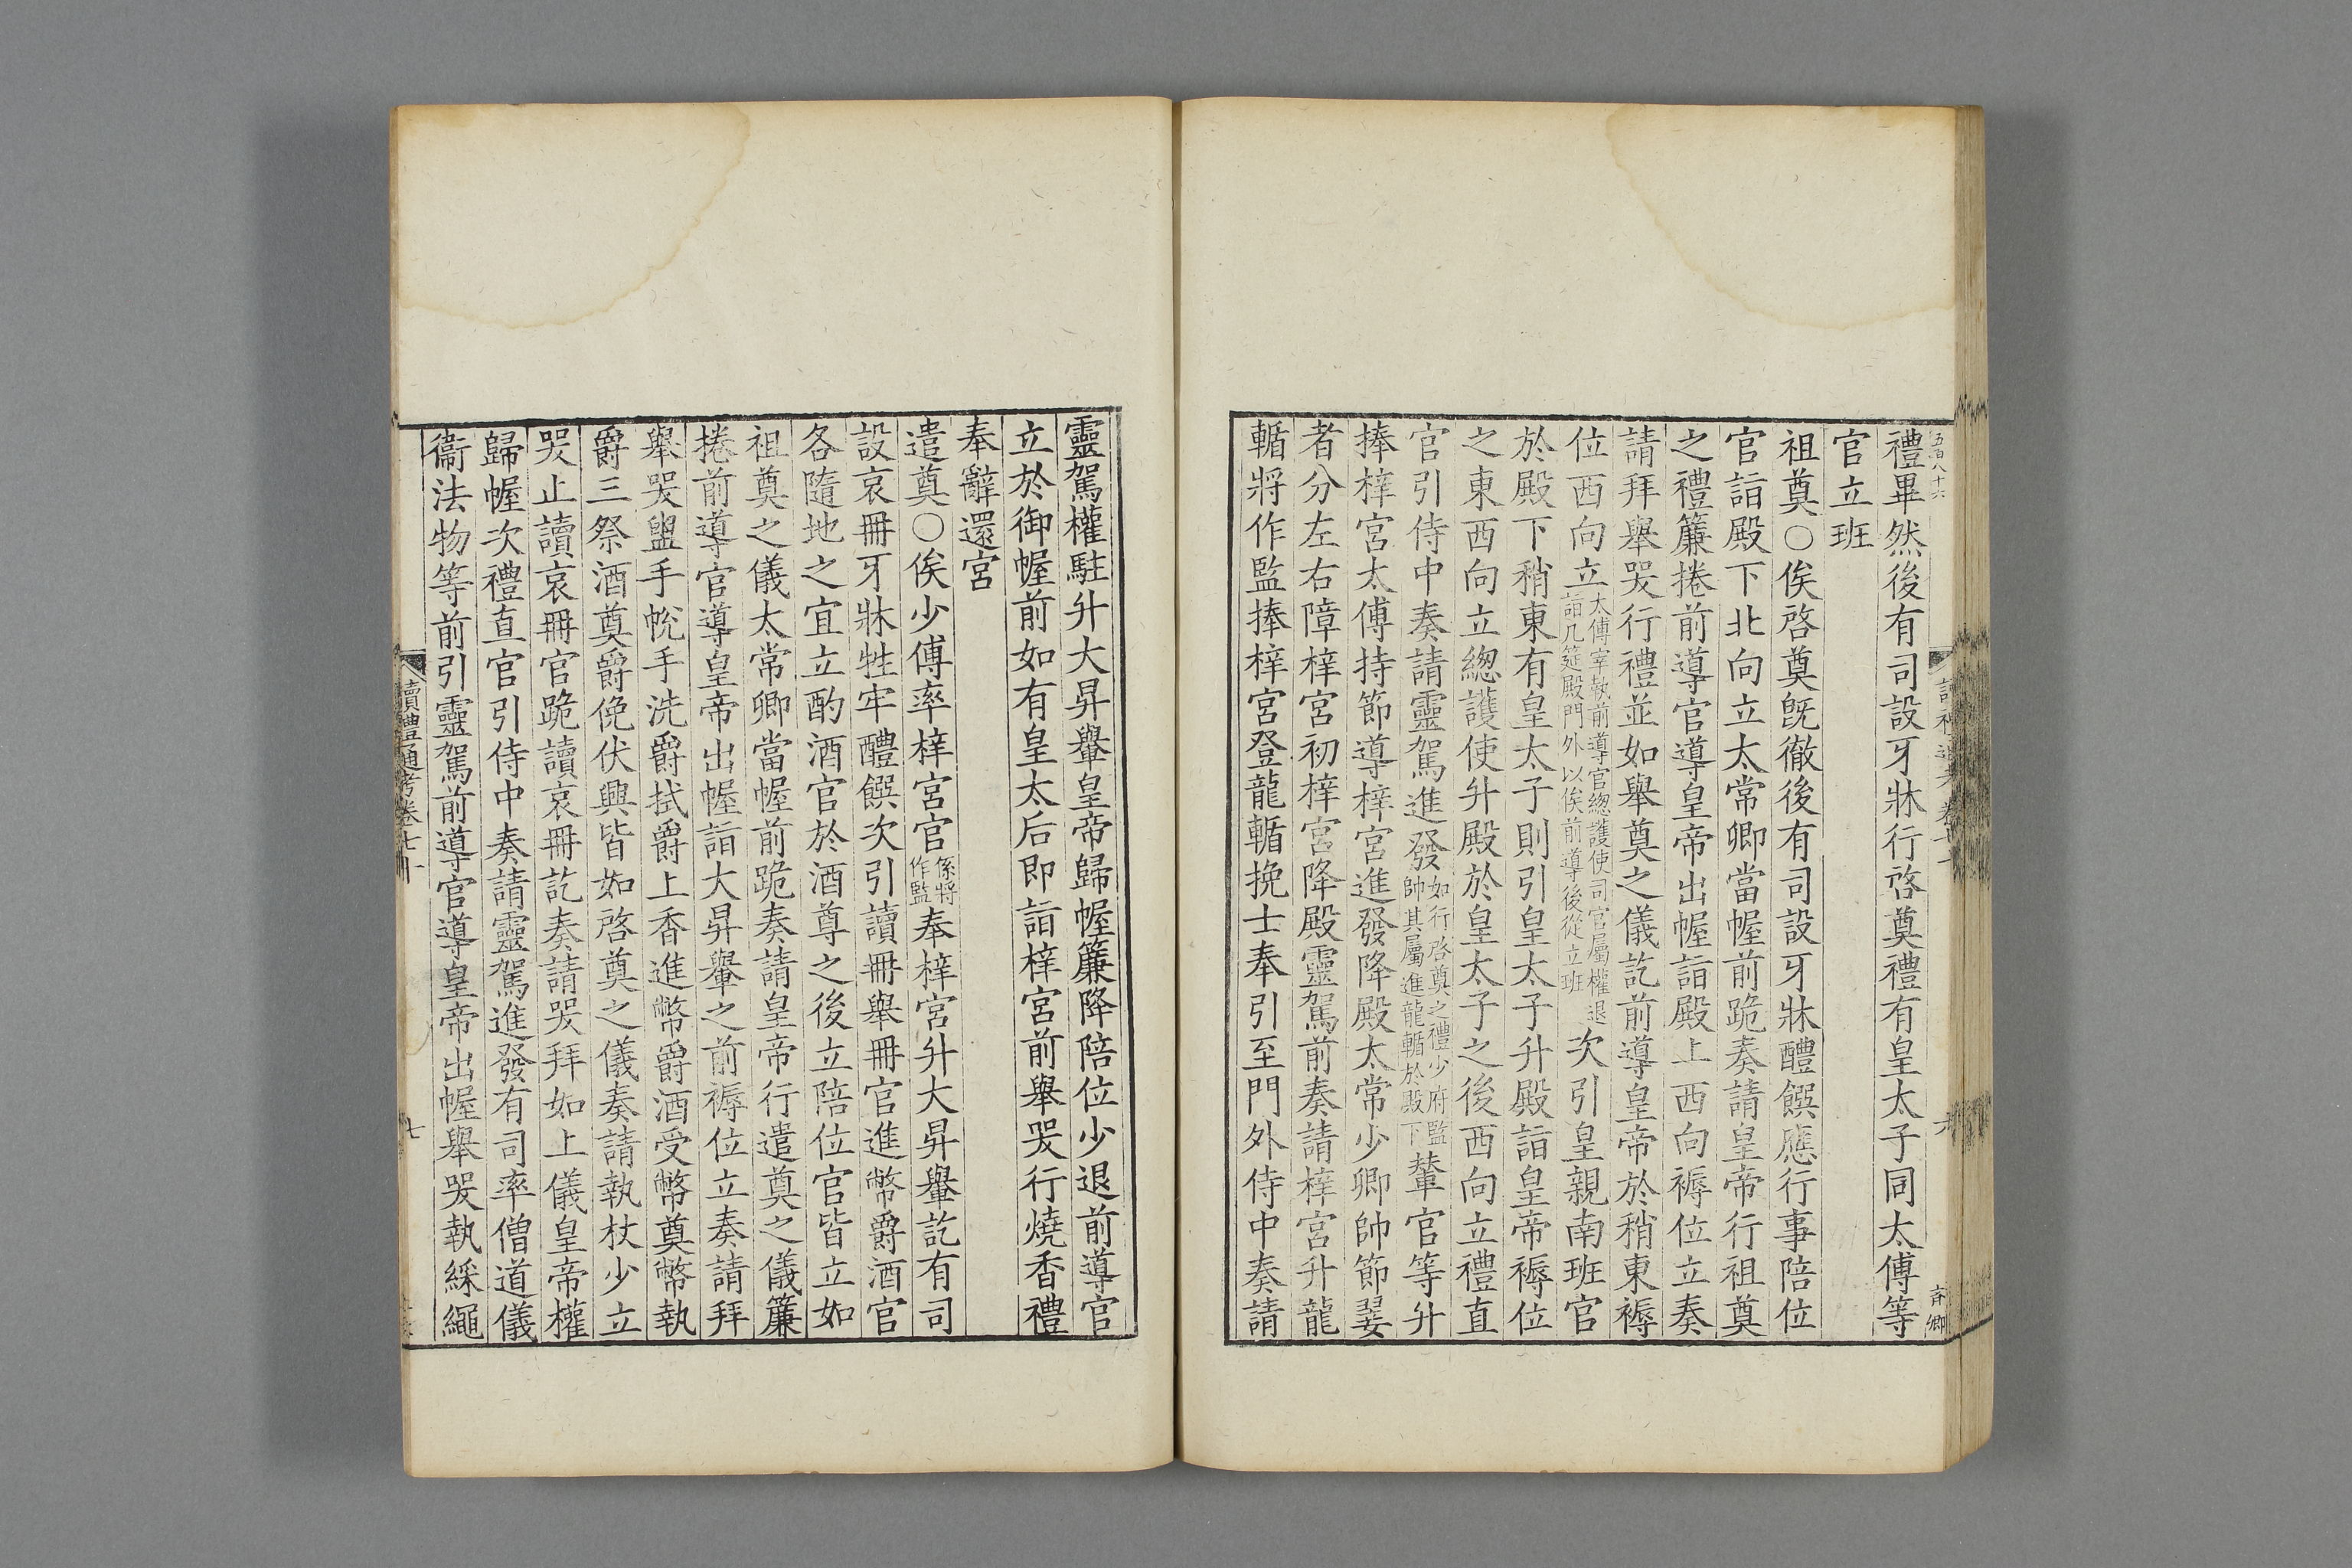 五百八十六
禮畢然後有司設牙牀行啓奠禮有皇太子同太傅等
官立班
祖奠○俟啓奠旣徹後有司設牙牀醴饌應行事陪位
官詣殿下北向立太常卿當幄前跪奏請皇帝行祖奠
之禮簾捲前導官導皇帝出幄詣殿上西向褥位立奏
請拜舉哭行禮並如舉奠之儀訖前導皇帝於稍東褥
位西向立太傅宰執前導官總護使司官屬權退詣几筵殿門外以俟前導後從立班次引皇親南班官
於殿下稍東有皇太子則引皇太子升殿詣皇帝褥位
之東西向立總護使升殿於皇太子之後西向立禮直
官引侍中奏請靈駕進發如行啓奠之禮少府監帥其屬進龍輴於殿下輦官等升
捧梓宮太傅持節導梓宮進發降殿太常少卿帥節翣
者分左右障梓宮初梓宮降殿靈駕前奏請梓宮升龍
輴將作監捧梓宮登龍輴挽士奉引至門外侍中奏請
靈駕權駐升大昇轝皇帝歸幄簾降陪位少退前導官
立於御幄前如有皇太后即詣梓宮前舉哭行燒香禮
奉辭還宮
遣奠○俟少傅率梓宮官係將作監奉梓宮升大昇轝訖有司
設哀冊牙牀牲牢醴饌次引讀冊舉冊官進幣爵酒官
各隨地之宜立酌酒官於酒尊之後立陪位官皆立如
祖奠之儀太常卿當幄前跪奏請皇帝行遣奠之儀簾
捲前導官導皇帝出幄詣大昇轝之前褥位立奏請拜
舉哭盥手帨手洗爵拭爵上香進幣爵酒受幣奠幣執
爵三祭酒奠爵俛伏興皆如啓奠之儀奏請執杖少立
哭止讀哀冊官跪讀哀冊訖奏請哭拜如上儀皇帝權
歸幄次禮直官引侍中奏請靈駕進發有司率僧道儀
衞法物等前引靈駕前導官導皇帝出幄舉哭執綵繩
讀禮通考卷七十
七